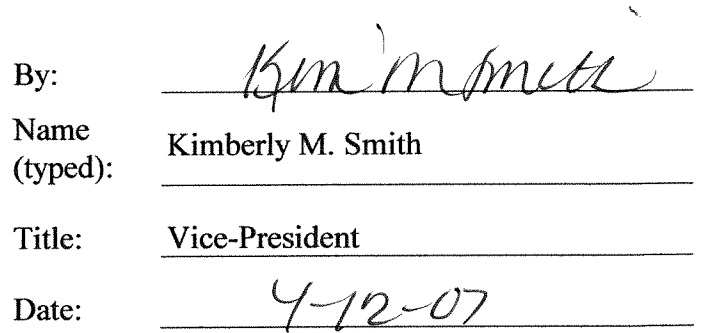 By: Kim M Smith
Name
(typed): Kimberly M. Smith
Title: Vice-President
Date: 4-12-07